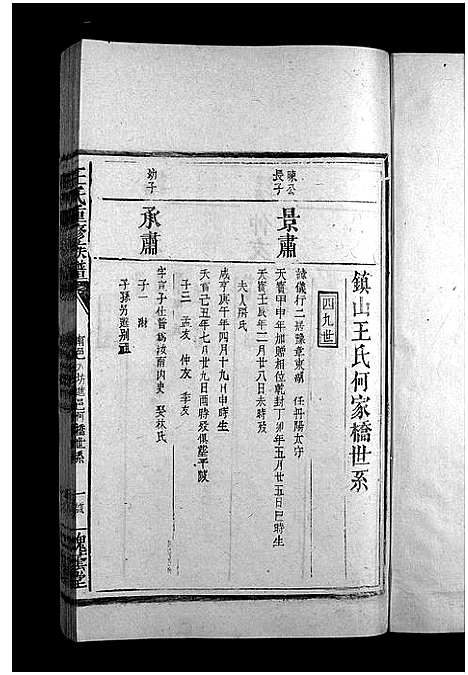 鎮山王氏何家橋世系
四九世
陳公長子
景肅
諱儀行二居豫章東湖 任丹陽太守
天寶甲申年加贈相位乾封丁卯年五月廿五日巳時生
天寶壬辰年二月廿八日未時歿
夫人房氏
咸亨庚午年四月十九月申時生
天寶己丑年七月廿九日酉時歿俱塟平陂
子三 孟友 仲友 季友
幼子
承肅
字宣子仕晉為汝南內史 娶林氏
子一 尉
子孫另遷別
王氏重修族譜
橋世系
一
槐蔭堂